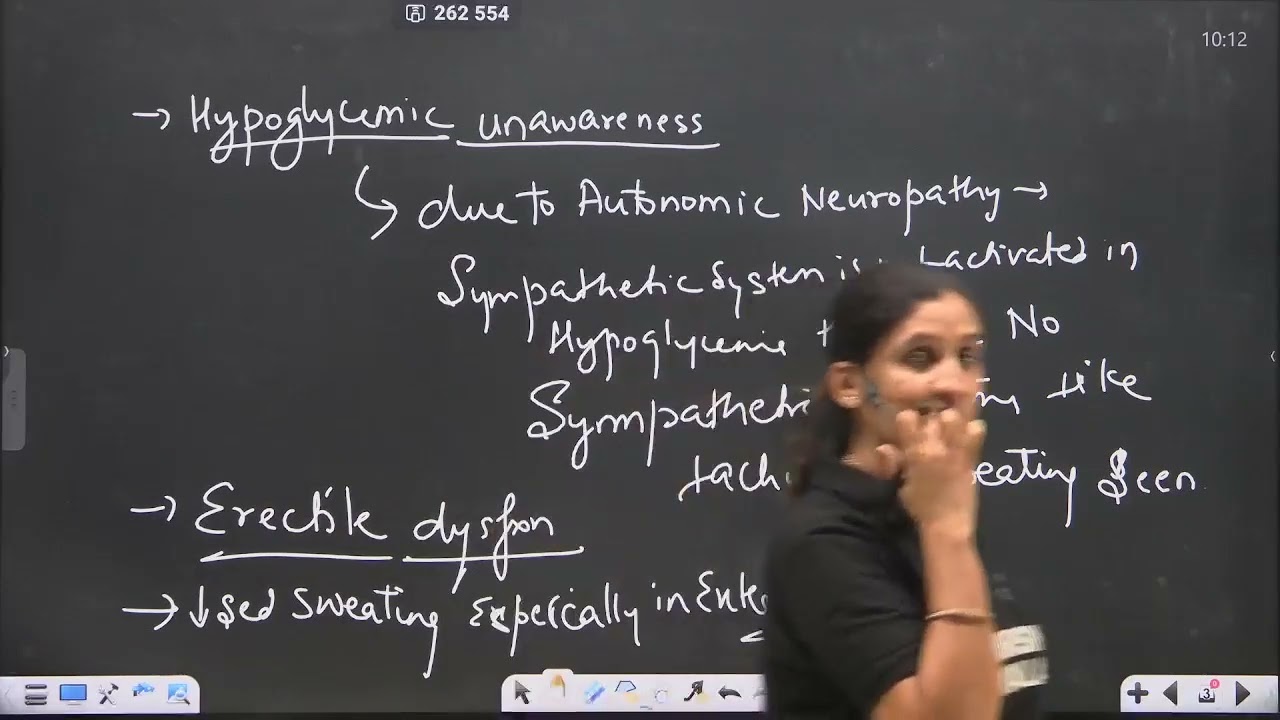 262 554
10:12
→ Hypoglycemic unawareness
↳ due to Autonomic Neuropathy →
Sympathetic System is activated in
Hypoglycemic No
Sympathetic like
tach eating Seen
→ Erectile dysfxn
→ ↓sed Sweating Expercially in Exte
3